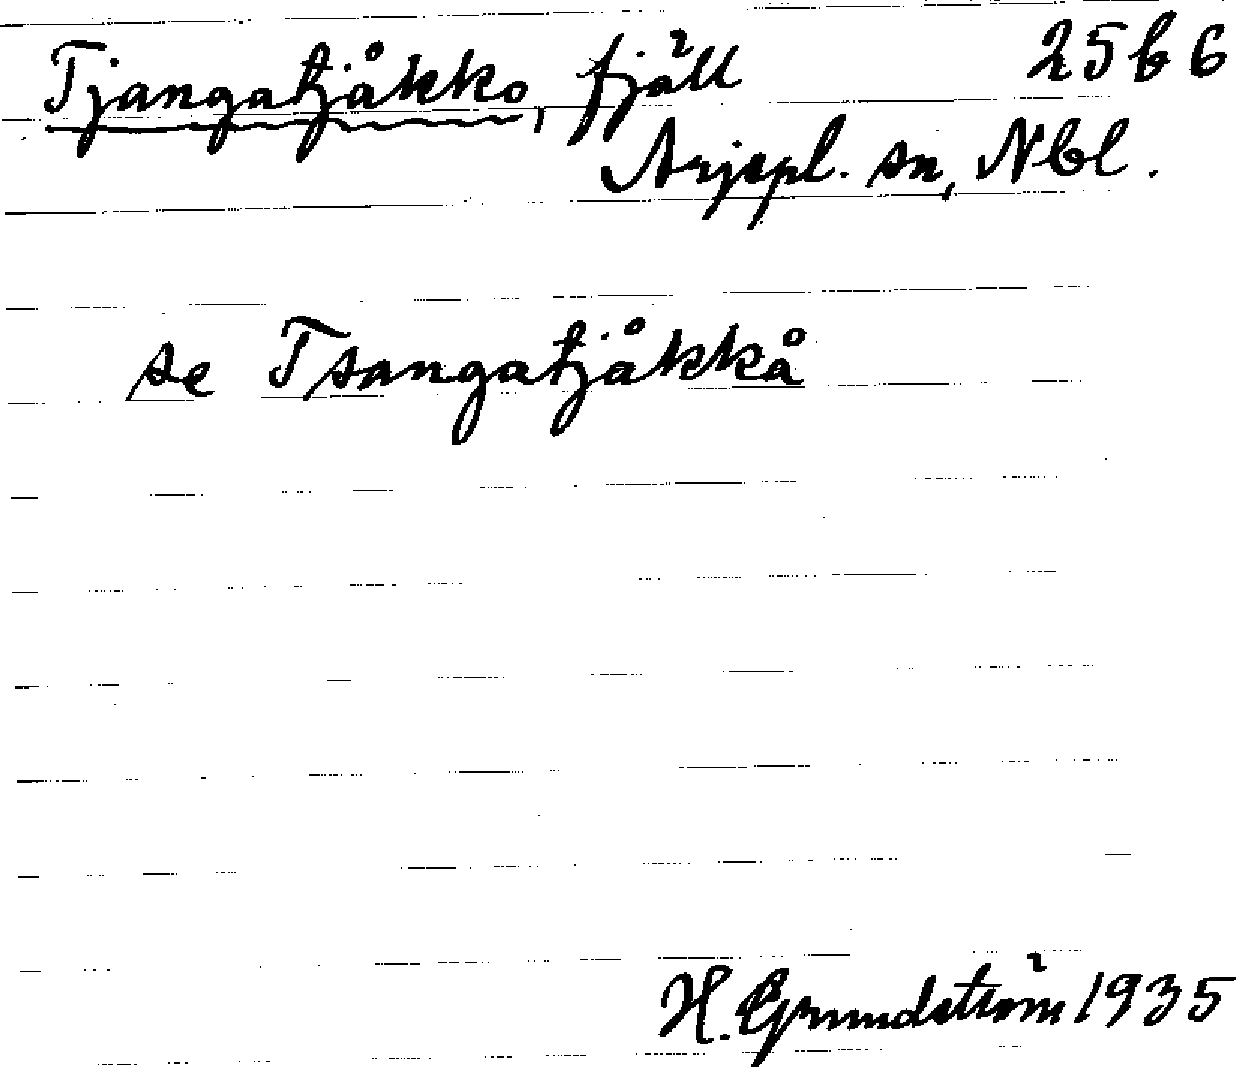 Tjangatjåkko, fjäll 25b6
Arjepl. sn, Nbl.
se Tsangatjåkkå
H. Grundström 1935